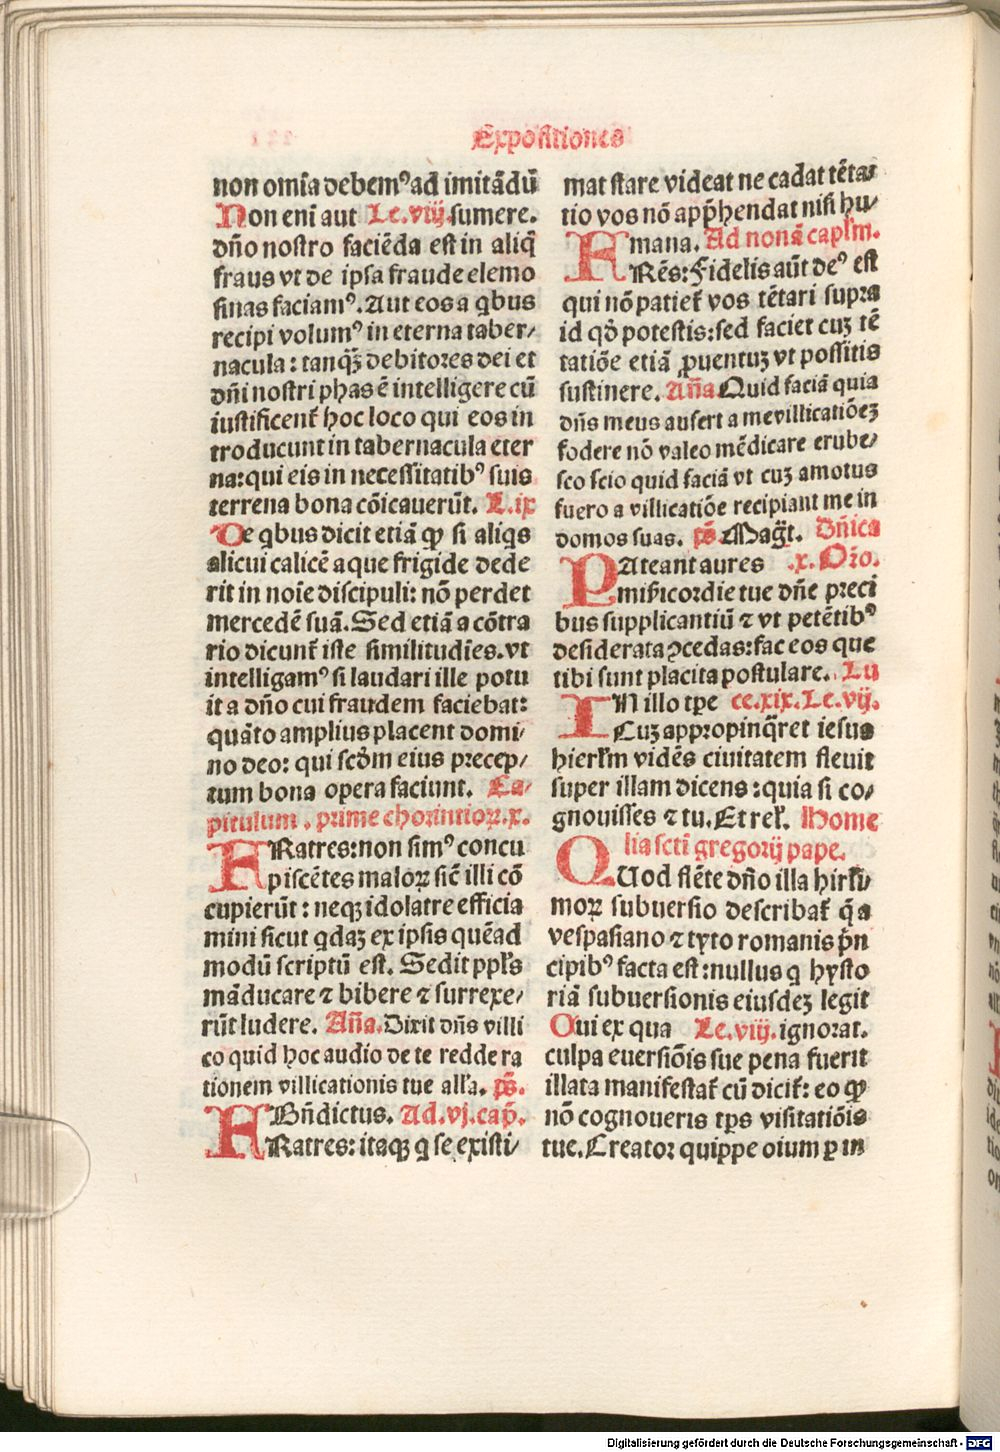 Expositiones
non omīa debemꝰ ad imitādū
Non enī aut Le.viij. sumere.
dño nostro faciēda est in aliq̄
fraus vt de ipsa fraude elemo
sinas faciamꝰ. Aut eos a qbus
recipi volumꝰ in eterna taber/
nacula: tanqꝫ debitores dei et
dñi nostri phas ē intelligere cū
iustificent̄ hoc loco qui eos in
troducunt in tabernacula eter
na: qui eis in necessitatibꝰ suis
terrena bona cōicauerūt. L.ix
De qbus dicit etiā ꝙ si aliqs
alicui calicē aque frigide dede
rit in noīe discipuli: nō perdet
mercedē suā. Sed etiā a cōtra
rio dicunt̄ iste similitudīes. vt
intelligamꝰ si laudari ille potu
it a dño cui fraudem faciebat:
quāto amplius placent domi/
no deo: qui scd̄m eius precep/
tum bona opera faciunt. Ca/
pitulum. prime chorintioꝝ.x.
FRatres: non simꝰ concu
piscētes maloꝝ sic̄ illi cō
cupierūt: neqꝫ idolatre efficia
mini sicut qdaꝫ ex ipsis quēad
modū scriptū est. Sedit ppl̄s
māducare ⁊ bibere ⁊ surrexe/
rūt ludere. Añā. Dixit dñs villi
co quid hoc audio de te redde ra
tionem villicationis tue all̄a. p̄s.
Bn̄dictus. Ad.vj.cap̄.
FRatres: itaqꝫ q se existi/
mat stare videat ne cadat tēta/
tio vos nō app̄hendat nisi hu/
mana. Ad nonā capl̄m.
FRēs: Fidelis aūt deꝰ est
qui nō patiet̄ vos tētari supra
id qd̄ potestis: sed faciet cuꝫ tē
tatiōe etiā ꝓuentuꝫ vt possitis
sustinere. Añā Quid faciā quia
dñs meus aufert a me villicatiōeꝫ
fodere nō valeo mēdicare erube/
sco scio quid faciā vt cuꝫ amotus
fuero a villicatiōe recipiant me in
domos suas. p̄s. Maḡt. Dñica
PAteant aures .x. Or̄o.
mīs̄icordie tue dñe preci
bus supplicantiū ⁊ vt petētibꝰ
desiderata ꝯcedas: fac eos que
tibi sunt placita postulare. Lu
IN illo tp̄e ce.xix. Le.vij.
Cuꝫ appropinq̄ret iesus
hierl̄m vidēs ciuitatem fleuit
super illam dicens: quia si co/
gnouisses ⁊ tu. Et rel̄. Home
lia scti gregorij pape.
QUod flēte dño illa hirl̄i/
moꝝ subuersio describat̄ q̄ a
vespasiano ⁊ tyto romanis p̄n
cipibꝰ facta est: nullus q hysto
riā subuersionis eiusdeꝫ legit
Qui ex qua Le.viij. ignorat.
culpa euersiōis sue pena fuerit
illata manifestat̄ cū dicit̄: eo ꝙ
nō cognoueris tp̄s visitatiōis
tue. Creator quippe oīum ꝑ in
Digitalisierung gefördert durch die Deutsche Forschungsgemeinschaft - DFG